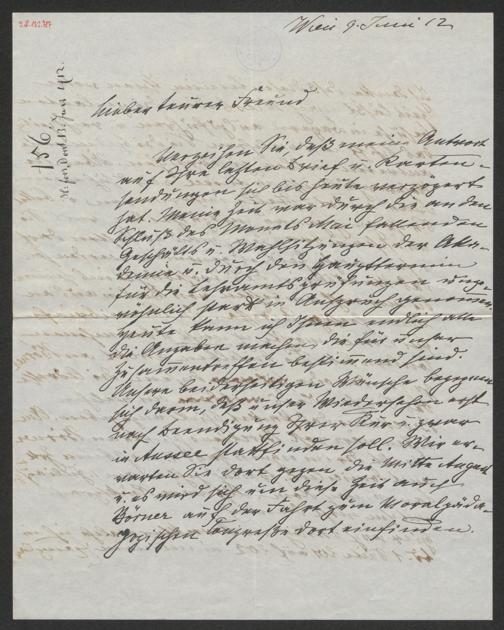 Wien 9. Juni 12
156
Lieber teurer Freund
Verzeihen Sie daß meine Antwort
auf Ihre letzten Brief u. Karten-
sendungen sich bis heute verzögert
hat. Meine Zeit war durch die an den
Schluß des Monats Mai fallenden
Geschäfts u. Wahlsitzungen der Aka-
demie u. durch den Haupttermin
für die Lehramtsprüfungen unge-
wöhnlich stark in Anspruch genommen.
Heute kann ich Ihnen endlich alle
die Angaben machen die für unser
Zusammentreffen bestimmend sind.
Unsere beiderseitigen Wünsche begegnen
sich darin, daß unser Wiedersehen erst
nach Beendigung Ihrer Kur u. zwar
in Aussee stattfinden soll. Wir er-
warten Sie dort gegen die Mitte August
u. es wird sich um diese Zeit auch
Börner auf der Fahrt zum Moralpäda-
gogischen Congresse dort einfinden.